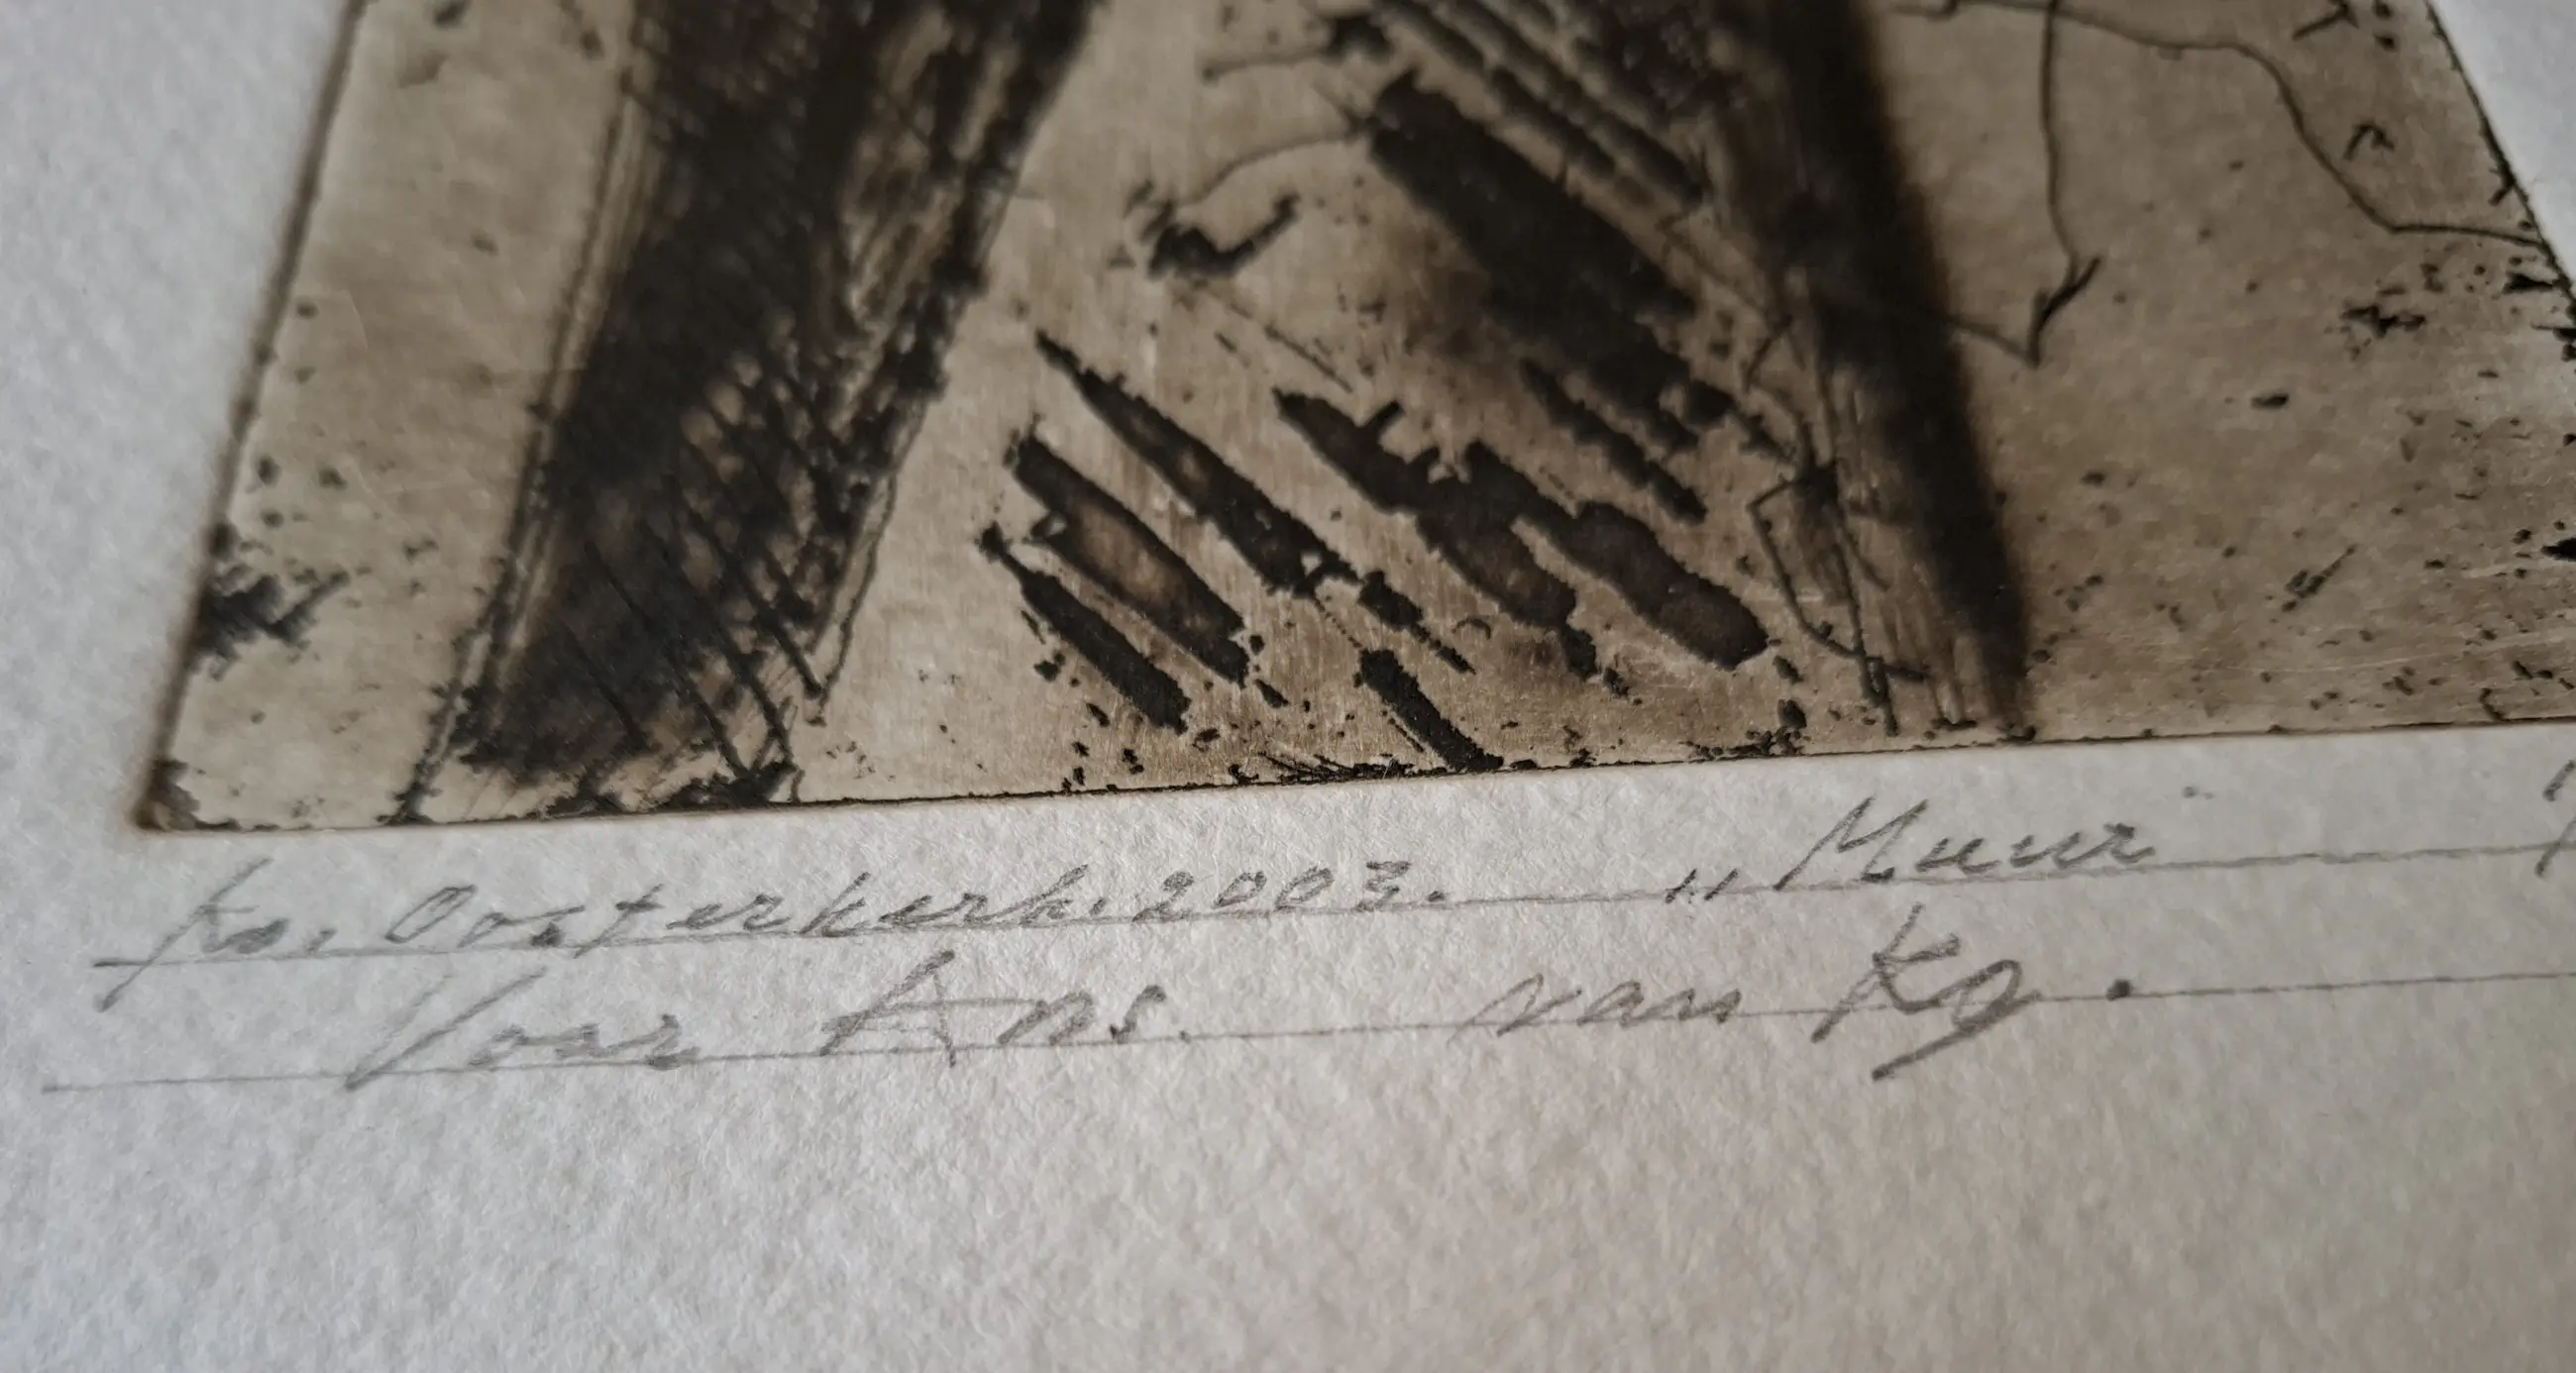 Ko. Oosterkerk. 2003. „Muur
Voor Ans. van Ko.